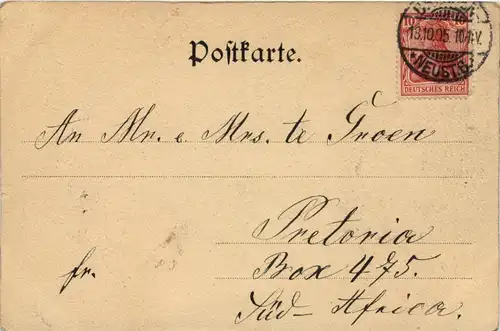 10 10
13.10.05. 10-11V.
* NEUST. 6 *
DEUTSCHES REICH
Postkarte.
An Mr. e Mrs. te Groen
Pretoria
fr.
Box 475.
Süd-Africa.